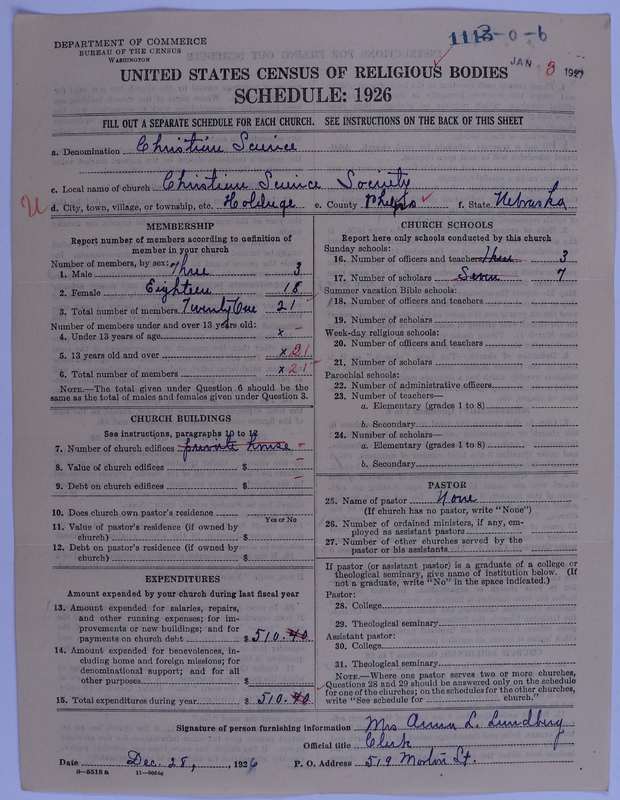 DEPARTMENT OF COMMERCE
BUREAU OF THE CENSUS
WASHINGTON
1113-0-6
JAN 3 1927
UNITED STATES CENSUS OF RELIGIOUS BODIES
SCHEDULE: 1926
FILL OUT A SEPARATE SCHEDULE FOR EACH CHURCH. SEE INSTRUCTIONS ON THE BACK OF THIS SHEET
a. Denomination Christian Science
c. Local name of church Christian Science Society
d. City, town, village, or township, etc. Holdrege e. County Phelps f. State Nebraska
MEMBERSHIP
Report number of members according to definition of member in your church
Number of members, by sex:
1. Male Three 3
2. Female Eighteen 18
3. Total number of members Twenty One 21
Number of members under and over 13 years old:
4. Under 13 years of age x –
5. 13 years old and over x 21
6. Total number of members x 21
NOTE.—The total given under Question 6 should be the same as the total of males and females given under Question 3.
CHURCH BUILDINGS
See instructions, paragraphs 10 to 12
7. Number of church edifices private house –
8. Value of church edifices $ –
9. Debt on church edifices $ –
10. Does church own pastor's residence
Yes or No
11. Value of pastor's residence (if owned by
church) $
12. Debt on pastor's residence (if owned by
church) $
EXPENDITURES
Amount expended by your church during last fiscal year
13. Amount expended for salaries, repairs,
and other running expenses; for im-
provements or new buildings; and for
payments on church debt $ 510.40
14. Amount expended for benevolences, in-
cluding home and foreign missions; for
denominational support; and for all
other purposes $
15. Total expenditures during year $ 510.40
CHURCH SCHOOLS
Report here only schools conducted by this church
Sunday schools:
16. Number of officers and teachers Three 3
17. Number of scholars Seven 7
Summer vacation Bible schools:
18. Number of officers and teachers
19. Number of scholars
Week-day religious schools:
20. Number of officers and teachers
21. Number of scholars
Parochial schools:
22. Number of administrative officers
23. Number of teachers—
a. Elementary (grades 1 to 8)
b. Secondary
24. Number of scholars—
a. Elementary (grades 1 to 8)
b. Secondary
PASTOR
25. Name of pastor None
(If church has no pastor, write "None")
26. Number of ordained ministers, if any, em-
ployed as assistant pastors
27. Number of other churches served by the
pastor or his assistants
If pastor (or assistant pastor) is a graduate of a college or
theological seminary, give name of institution below. (If
not a graduate, write "No" in the space indicated.)
Pastor:
28. College
29. Theological seminary
Assistant pastor:
30. College
31. Theological seminary
NOTE.—Where one pastor serves two or more churches,
Questions 28 and 29 should be answered only on the schedule
for one of the churches; on the schedules for the other churches,
write "See schedule for church."
Signature of person furnishing information Mrs Anna L. Lundberg
Official title Clerk
Date Dec. 28, , 1926 P. O. Address 519 St.
8—5518 a 11—9054